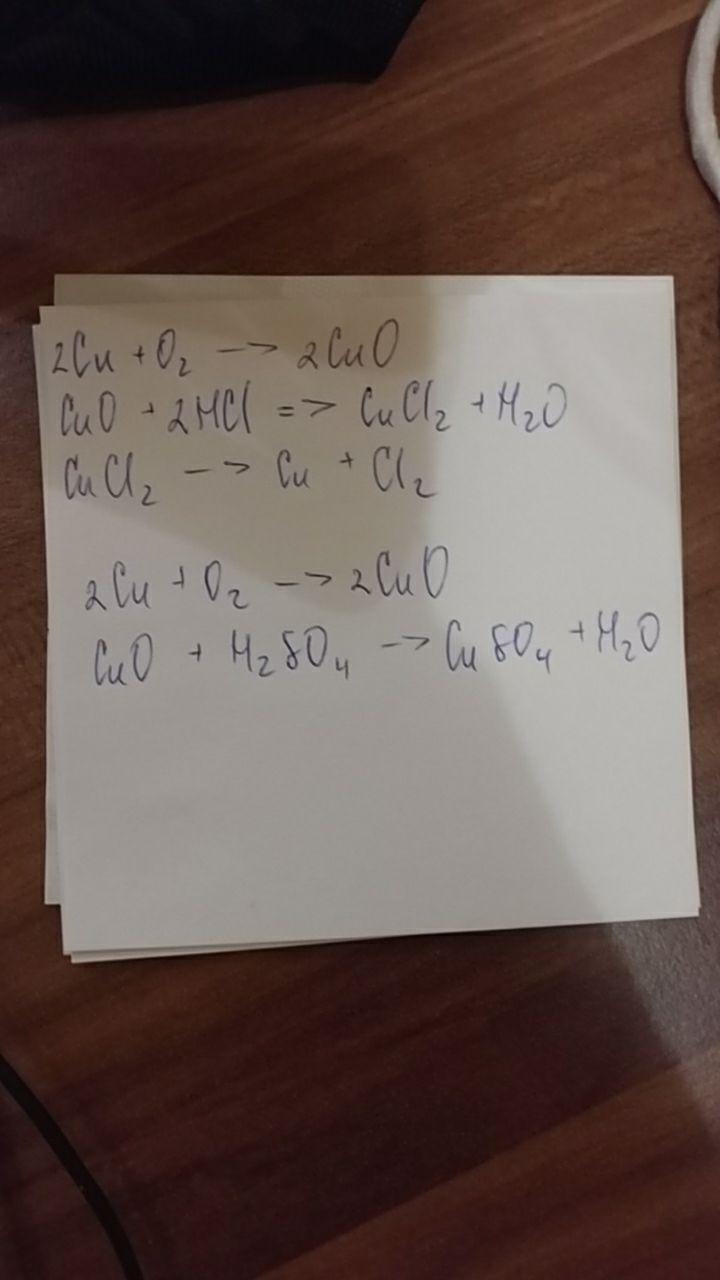 2Cu + O₂ -> 2CuO
CuO + 2HCl => CuCl₂ + H₂O
CuCl₂ -> Cu + Cl₂
2Cu + O₂ -> 2CuO
CuO + H₂SO₄ -> CuSO₄ + H₂O